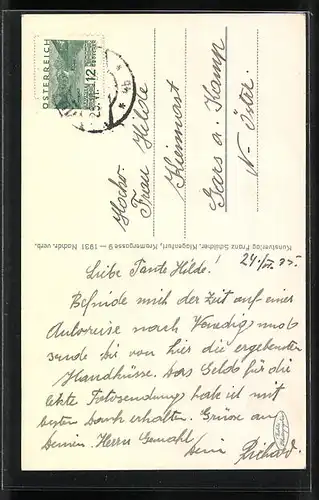 ÖSTERREICH
12
Hochw.
Frau Hilde
Kleinnast
Gars a. Kamp
N-Öster.
Kunstverlag Franz Schilcher, Klagenfurt, Kramergasse 9 — 1931 Nachdr. verb.
24./IX.35.
Liebe Tante Hilde!
Befinde mich der Zeit auf einer
Autoreise nach Venedig, und
sende Dir von hier die ergebensten
Handküsse. Das Geld für die
letzte Fotosendung habe ich mit
besten Dank erhalten. Grüsse an
Deinen Herrn Gemahl
Dein Richard.